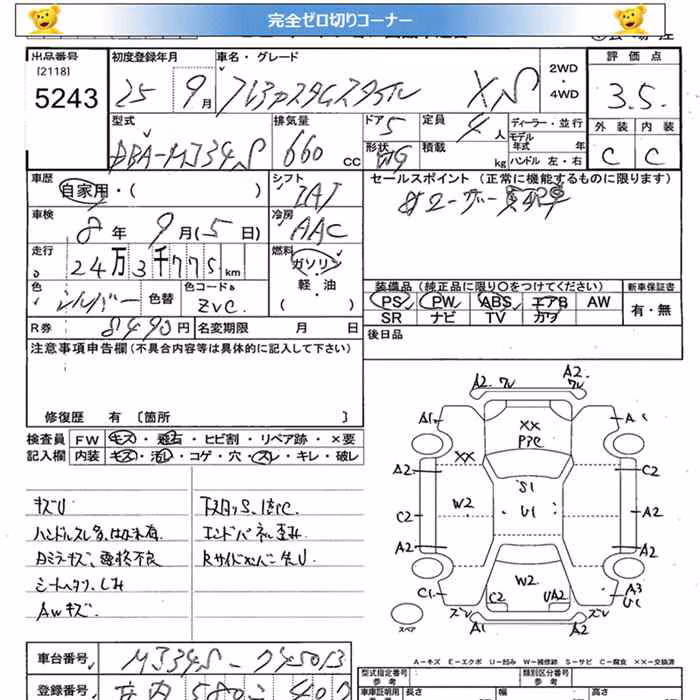 完全ゼロ切りコーナー
出品番号
[2118]
5243
初度登録年月
25 9月
車名・グレード
XS
2WD
・
4WD
評価点
3.5
型式
DBA-MJ34S
排気量
660 cc
ドア 5
形状
定員 4人
積載 kg
ディーラー・並行
モデル年式 年
ハンドル 左・右
外装 内装
C C
車歴
自家用・( )
シフト
IAT
セールスポイント (正常に機能するものに限ります)
車検
8年 9月(5日)
冷房
AAC
走行
24万3千775km
燃料
ガソリン
軽・油
( )
装備品(純正品に限り○をつけてください)
新車保証書
PS PW ABS エアB AW
SR ナビ TV カワ
有・無
色
シルバー
色替
色コード&
ZVC
R券 8490円
名変期限 月 日
後日品
注意事項申告欄(不具合内容等は具体的に記入して下さい)
修復歴 有 [箇所 ]
検査員 FW キズ・飛石・ヒビ割・リペア跡・×要
記入欄 内装 キズ・汚れ・コゲ・穴・スレ・キレ・破れ
キズU
ハンドルスレ多.はがれ有.
シートヘタリ.しみ
AWキズ.
下スタッS.錆C.
エンドパネル歪み
A2 ワレ A2 ワレ
A1 A1
XX
P2C
XX
A2 C2
S1
W2 U1
C2 A2
A2 A2
W2
C2 UA2
C1 A3
U1
ズレ ズレ
A1 A2
スペア
A-キズ E-エクボ U-凹み W-補修跡 S-サビ C-腐食 XX-交換済
車台番号 MJ34S-245013
登録番号 580 400
型式指定番号 類別区分番号
車庫証明用 長さ 幅 高さ